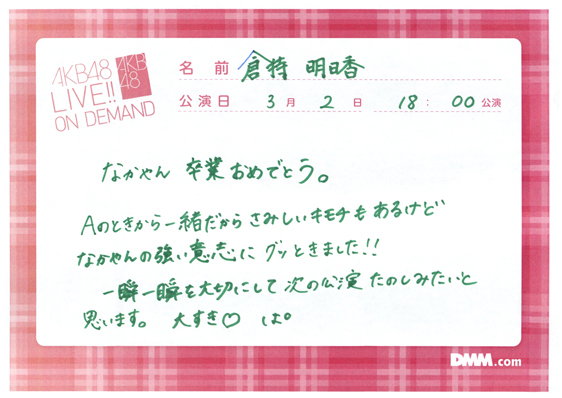 AKB48
LIVE!!
ON DEMAND
AKB
48
名前 倉持 明日香
公演日 3月 2日 18:00公演
なかやん 卒業おめでとう。
Aのときから一緒だからさみしいキモチもあるけど
なかやんの強い意志に グッときました!!
一瞬一瞬を大切にして次の公演たのしみたいと
思います。 大すき♡ は°
DMM.com